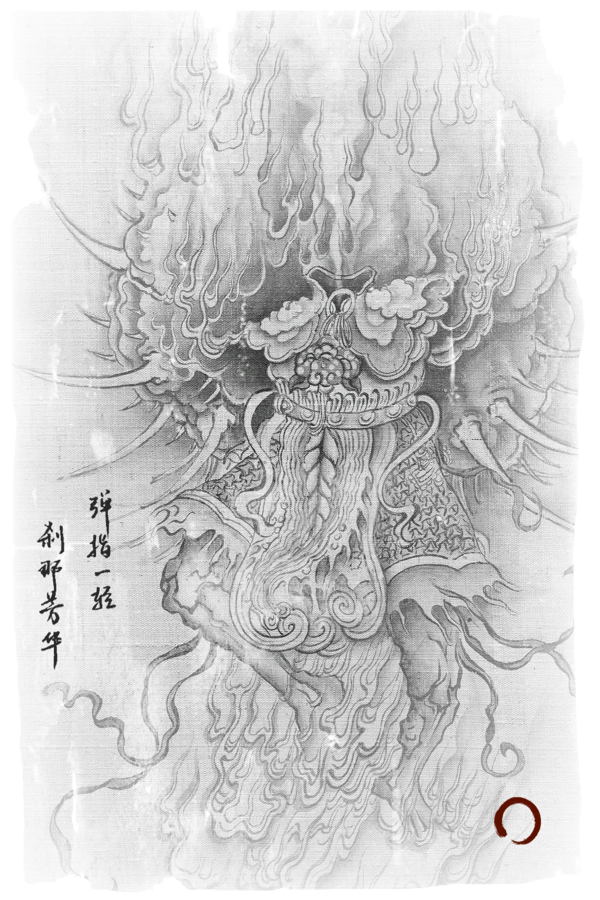 弹指一轻
刹那芳华